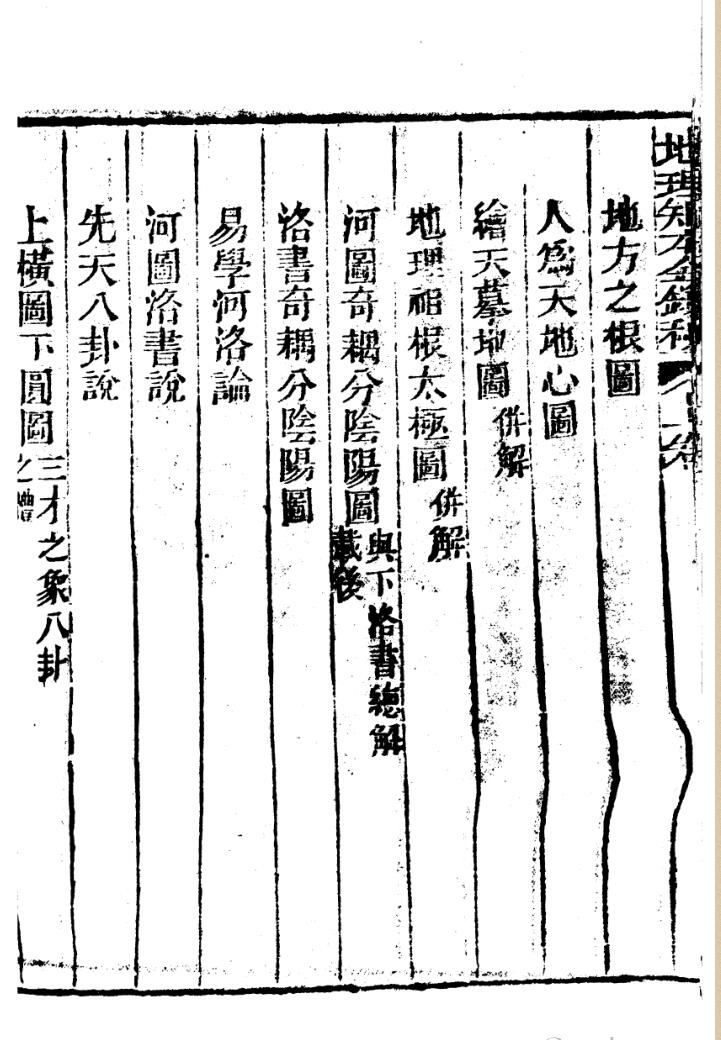 地理知本金鎖秘
地方之根圖
人爲天地心圖
繪天墓地圖 併解
地理祖根太極圖 併解
河圖奇耦分陰陽圖 與下洛書總解載後
洛書奇耦分陰陽圖
易學河洛論
河圖洛書說
先天八卦說
上橫圖下圓圖 三才之象八卦之